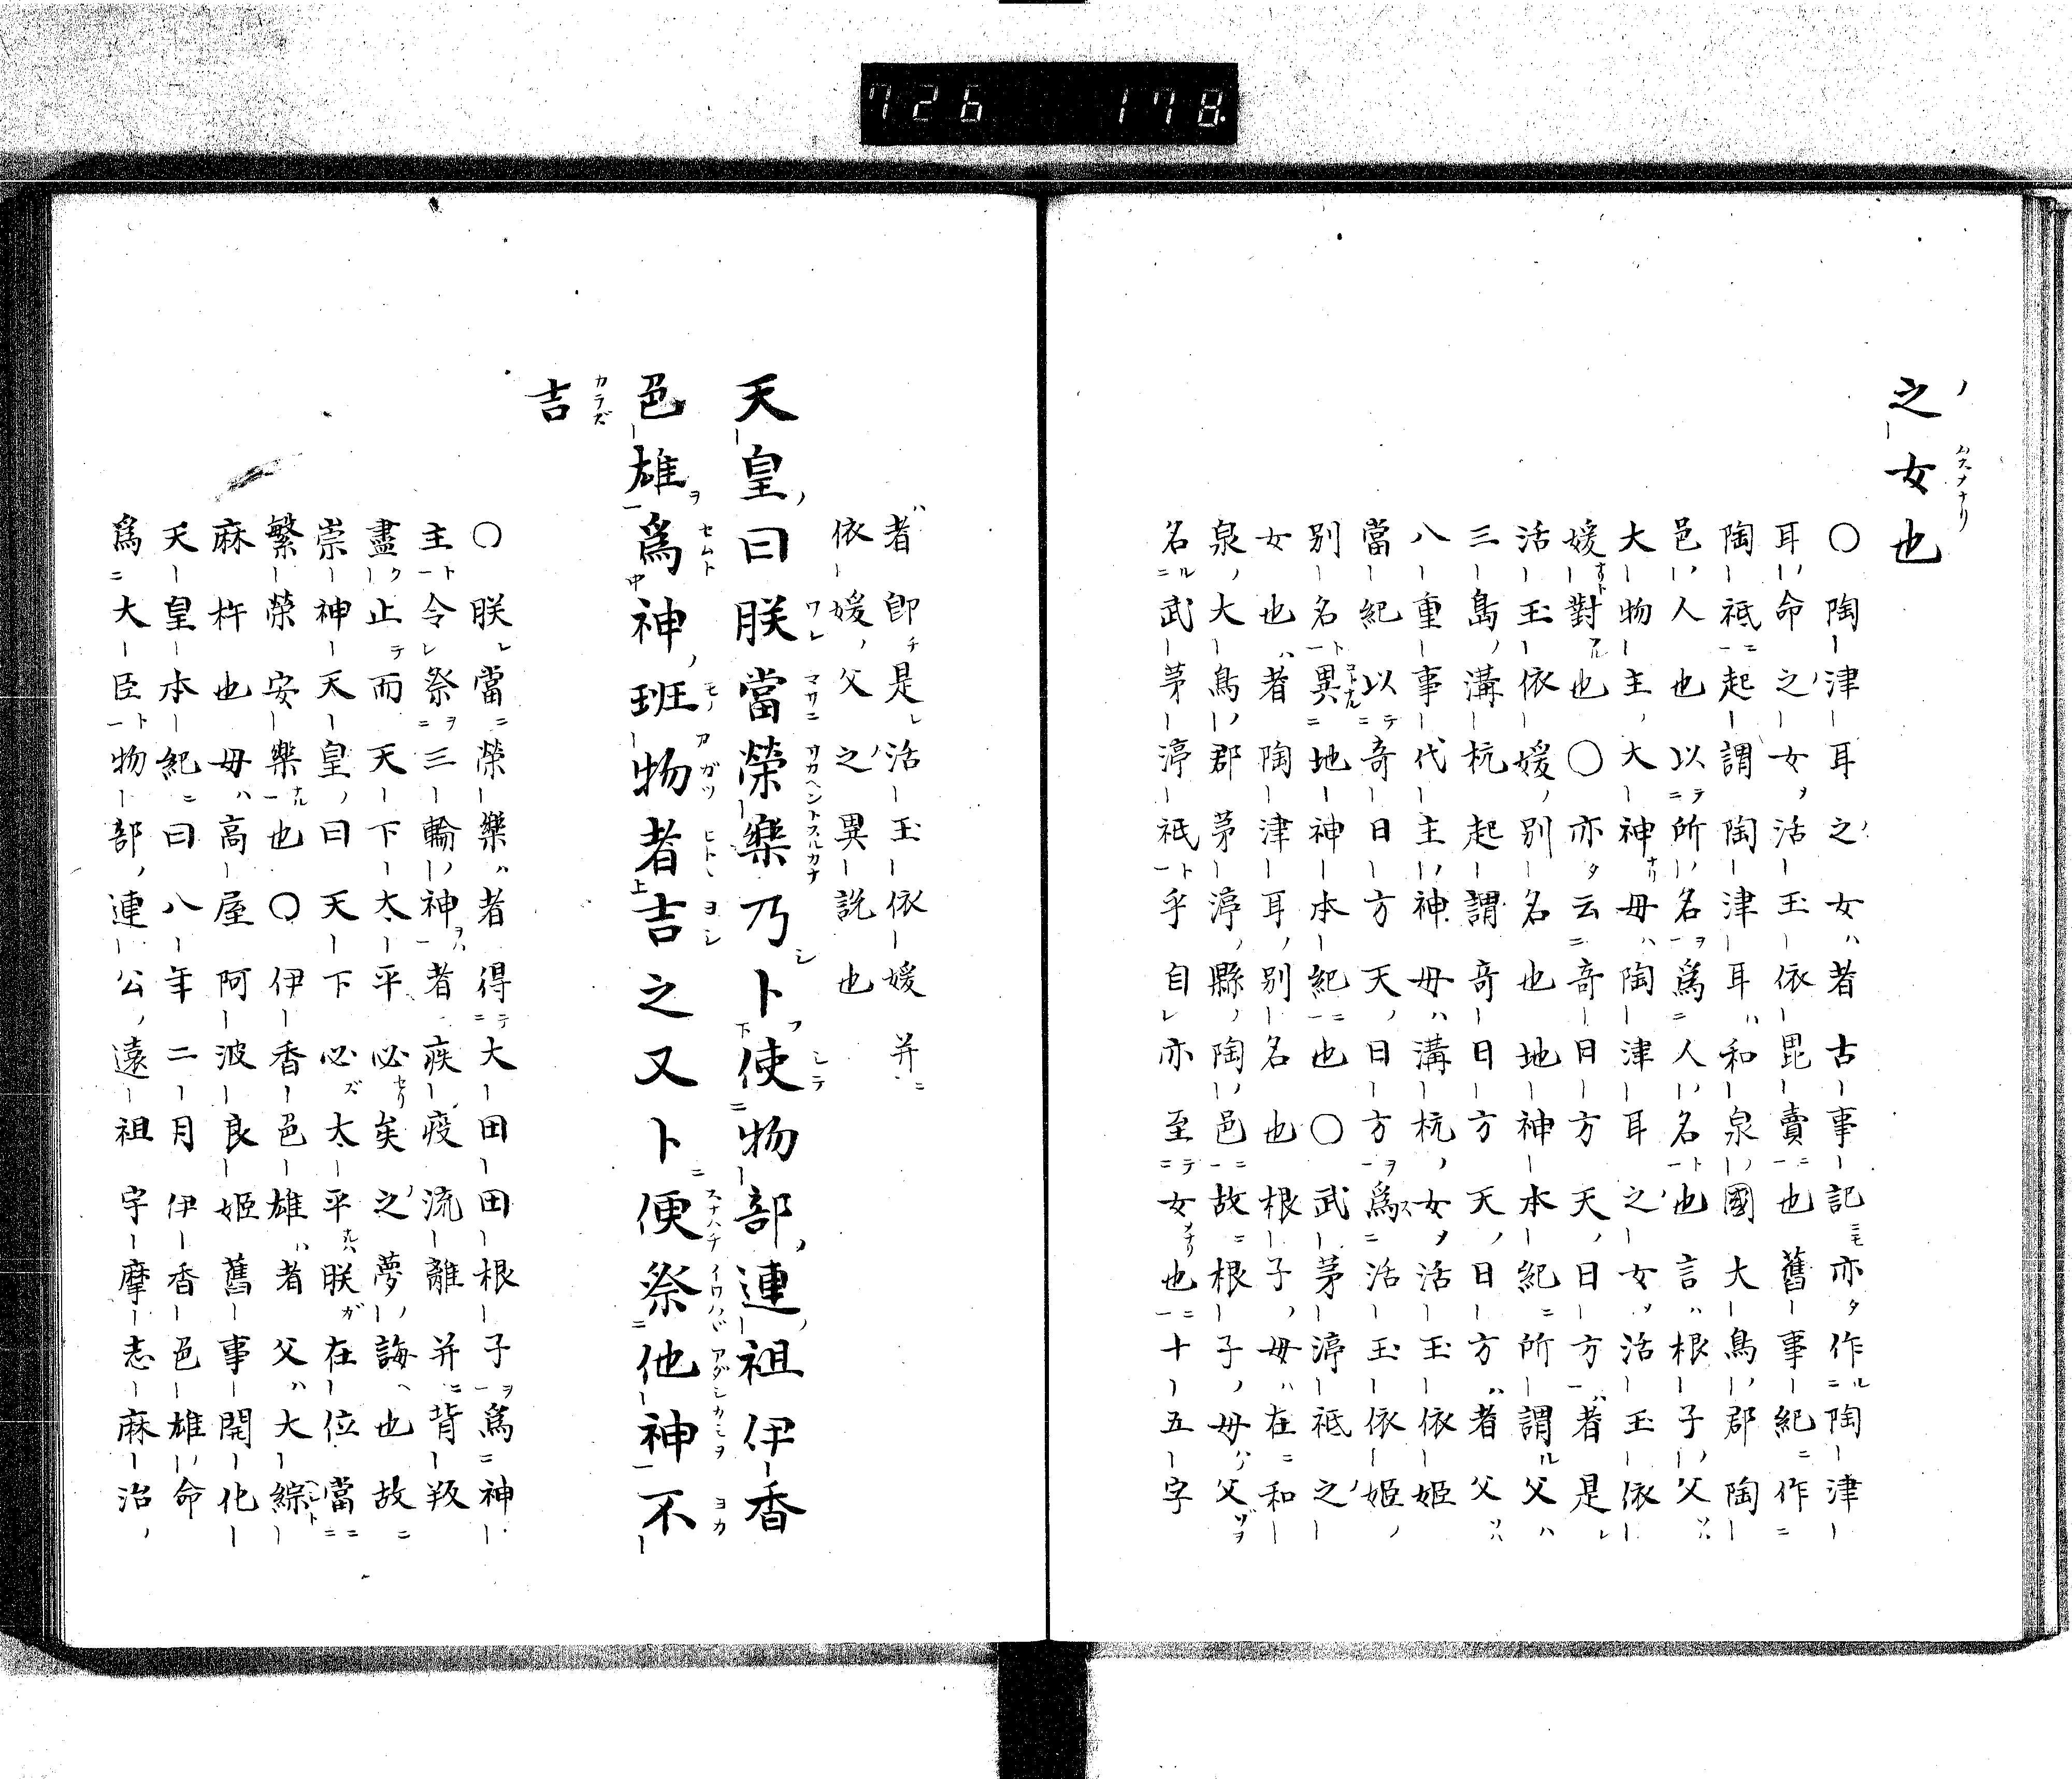 726 178
之女也
○陶津耳之女者古事記亦作陶津
耳命之女活玉依毘賣也舊事紀作
陶祇起謂陶津耳和泉國大鳥郡陶
邑人也以所名爲人名也言根子父
大物主大神母陶津耳之女活玉依
媛對也○亦云奇日方天日方者是
活玉依媛別名也地神本紀所謂父
三島溝杭起謂奇日方天日方者父
八重事代主神母溝杭女活玉依姬
當紀以奇日方天日方爲活玉依姬
別名異地神本紀也○武茅渟祇之
女也者陶津耳別名也根子母在和
泉大鳥郡茅渟縣陶邑故根子母父
名武茅渟祇乎自亦至女也十五字
者卽是活玉依媛并
依媛父之異說也
天皇曰朕當榮樂乃卜使物部連祖伊香
色雄爲神班物者吉之又卜便祭他神不
吉
○朕當榮樂者得大田田根子爲神
主令祭三輪神者疾疫流離并背叛
盡止而天下太平必矣之夢誨也故
崇神天皇曰天下必太平朕在位當
繁榮安樂也○伊香色雄者父大綜
麻杵也母高屋阿波良姬舊事開化
天皇本紀曰八年二月伊香色雄命
爲大臣物部連公遠祖宇摩志麻治